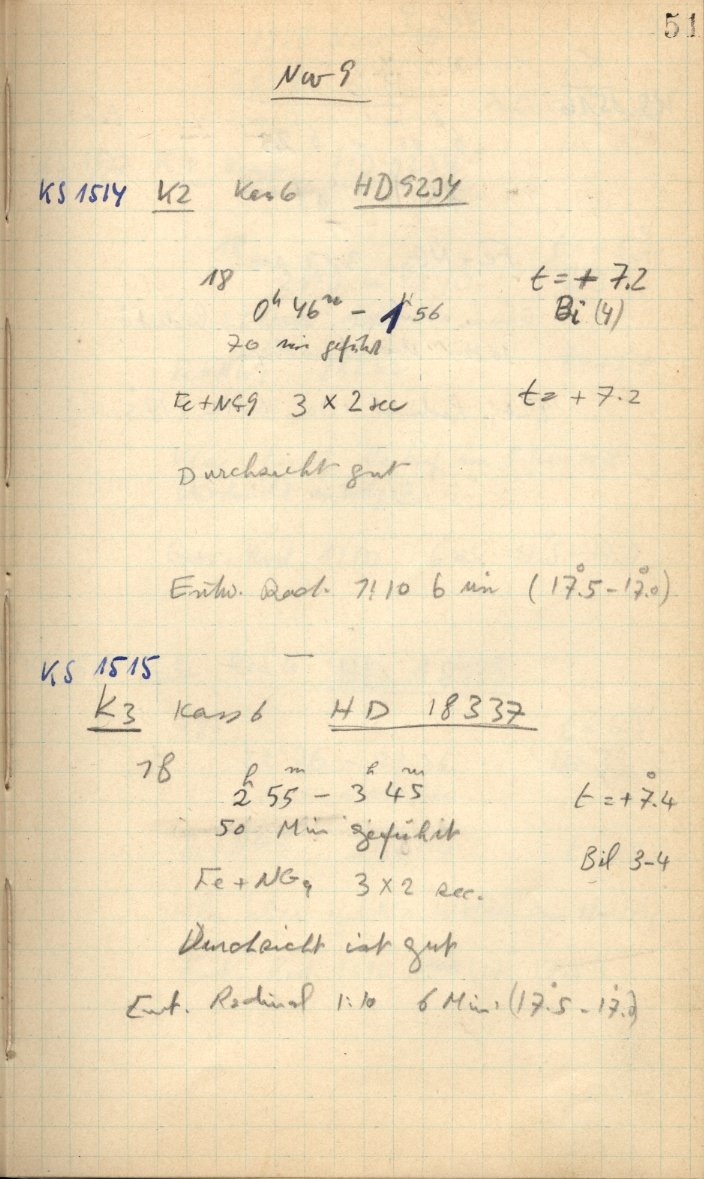 51
Nov 9
KS 1514 K2 Kass 6 HD 9234
18
0h 46m – 1h 56 t = + 7.2
70 min geführt Bi (4)
Fe + NG9 3 × 2 sec t = + 7.2
Durchsicht gut
Entw. Rod. 1:10 6 min (17°.5 – 17°.0)
KS 1515
K3 Kass 6 HD 18337
18
2h 55m – 3h 45m t = + 7°.4
50 Min geführt
Bil 3-4
Fe + NG9 3 × 2 sec.
Durchsicht ist gut
Ent. Rodinal 1:10 6 Min. (17°.5 – 17°.0)